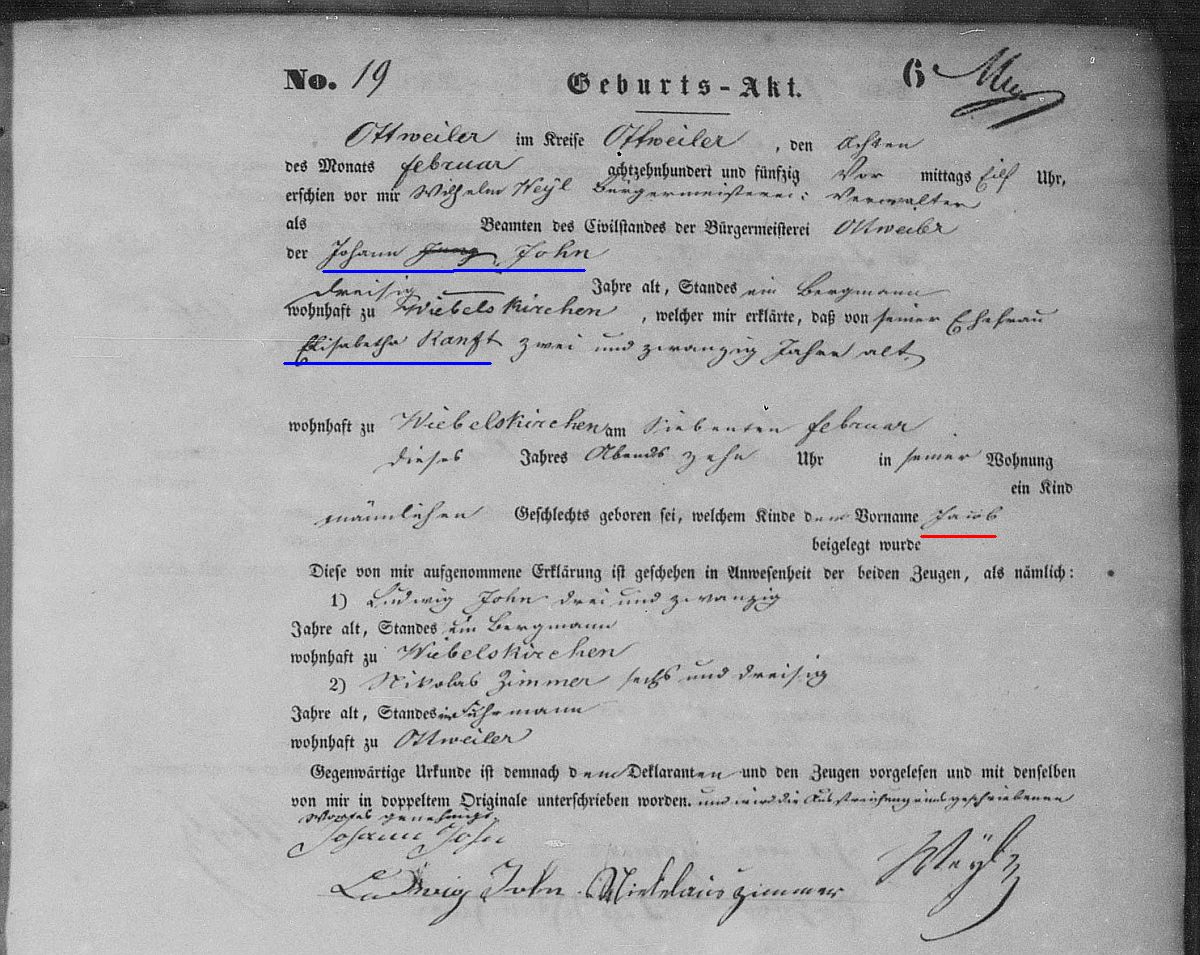 No. 19 Geburts-Akt. 6
Ottweiler im Kreise Ottweiler, den Achten
des Monats februar achtzehnhundert und fünfzig Vor mittags Eilf Uhr,
erschien vor mir Wilhelm Weyl Bürgermeisterei: Verwalter
als Beamten des Civilstandes der Bürgermeisterei Ottweiler
der Johann John
dreisig Jahre alt, Standes ein Bergmann
wohnhaft zu Wiebelskirchen, welcher mir erklärte, daß von seiner Ehefrau
Elisabetha Ranft zwei und zwanzig Jahre alt
wohnhaft zu Wiebelskirchen am Siebenten februar
dieses Jahres Abends zehn Uhr in seiner Wohnung
ein Kind
männlichen Geschlechts geboren sei, welchem Kinde der Vorname Jacob
beigelegt wurde
Diese von mir aufgenommene Erklärung ist geschehen in Anwesenheit der beiden Zeugen, als nämlich:
1) Ludwig John drei und zwanzig
Jahre alt, Standes ein Bergmann
wohnhaft zu Wiebelskirchen
2) Nikolas Zimmer sechs und dreisig
Jahre alt, Standes ein Fuhrmann
wohnhaft zu Ottweiler
Gegenwärtige Urkunde ist demnach dem Deklaranten und den Zeugen vorgelesen und mit denselben
von mir in doppeltem Originale unterschrieben worden. und wird die Ausstreichung eines geschriebenen
Wortes genehmigt.
Johann John
Ludwig John Nickelaus Zimmer Weyl